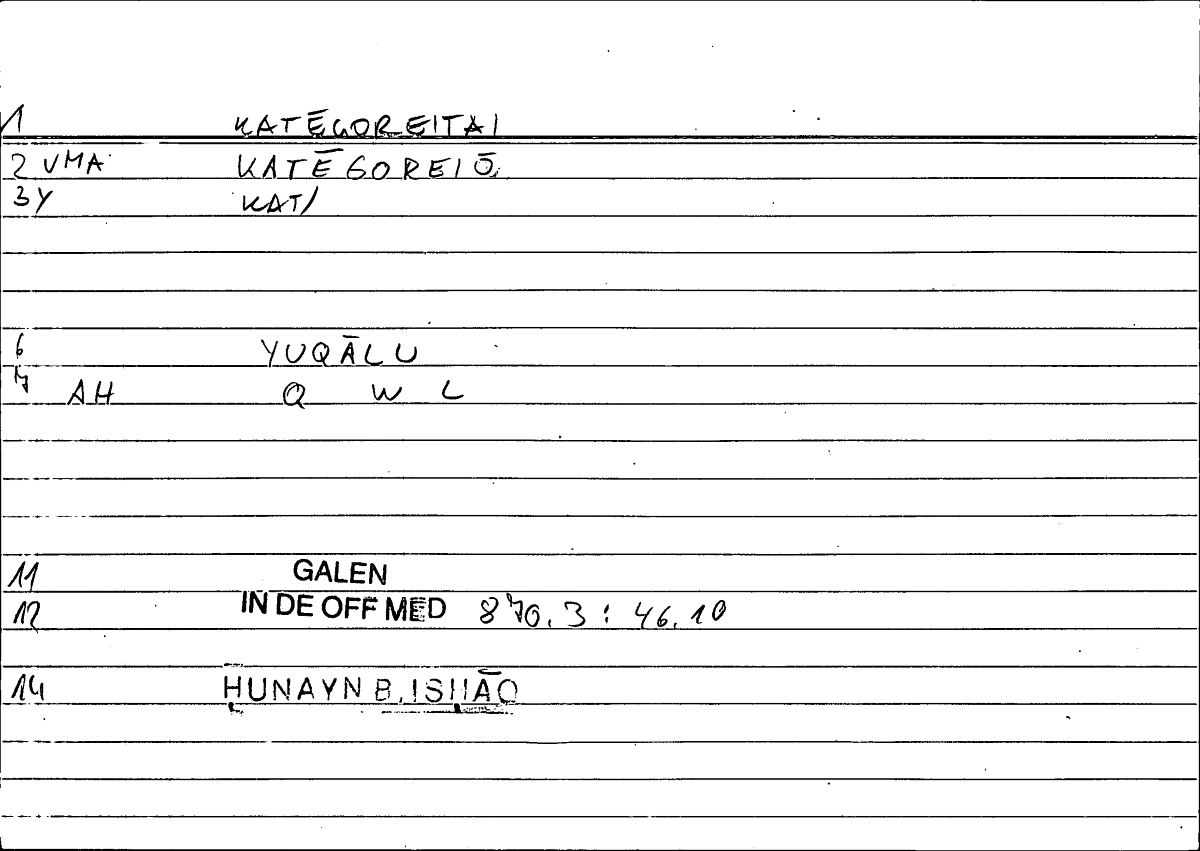 1 KATĒGOREITAI
2 VMA KATĒGOREIŌ
3Y KAT/
6 YUQĀLU
7 AH Q W L
11 GALEN
12 IN DE OFF MED 870.3 : 46.10
14 ḤUNAYN B. ISḤĀQ